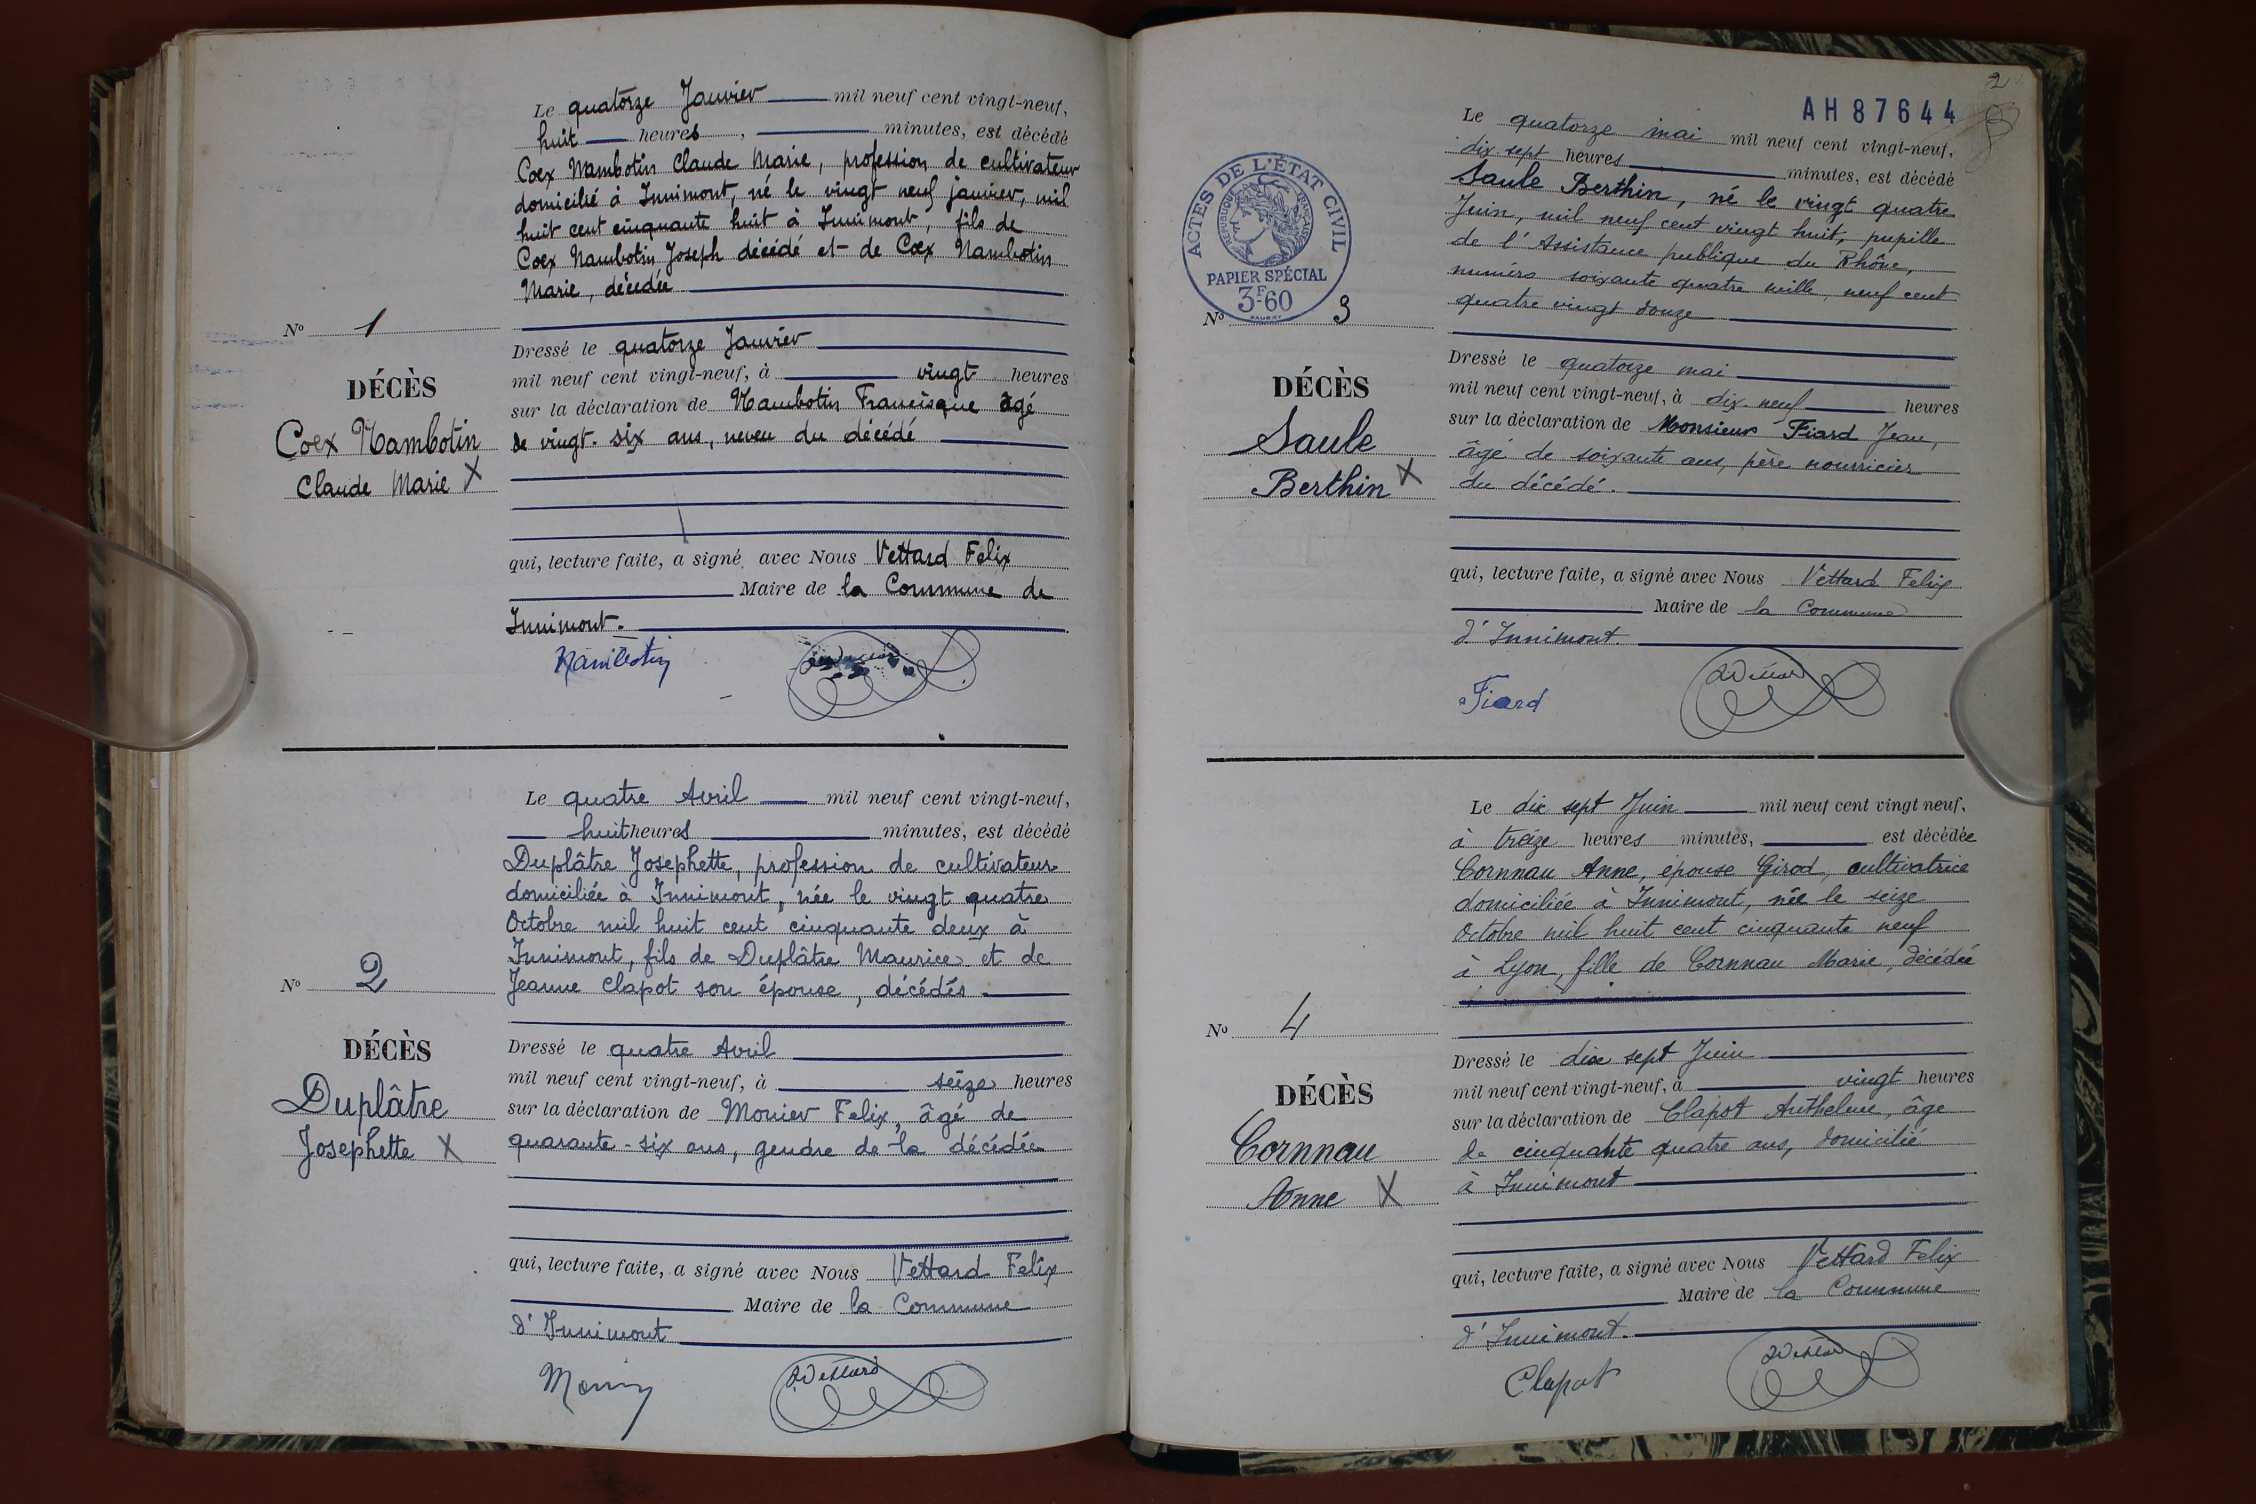 Le quatorze Janvier mil neuf cent vingt-neuf,
huit heures, minutes, est décédé
Coex Mambotin Claude Marie, profession de cultivateur
domicilié à Innimont, né le vingt neuf janvier, mil
huit cent cinquante huit à Innimont, fils de
Coex Nambotin Joseph décédé et de Coex Nambotin
Marie, décédée
N° 1
Dressé le quatorze Janvier
mil neuf cent vingt-neuf, à vingt heures
DÉCÈS
sur la déclaration de Nambotin Francisque âgé
Coex Nambotin
de vingt-six ans, neveu du décédé
Claude Marie X
qui, lecture faite, a signé avec Nous Vettard Felix
Maire de la Commune de
Innimont.
Nambotin
Le quatre Avril mil neuf cent vingt-neuf,
huit heures minutes, est décédé
Duplâtre Josephette, profession de cultivateur
domiciliée à Innimont, née le vingt quatre
Octobre mil huit cent cinquante deux à
Innimont, fils de Duplâtre Maurice et de
N° 2
Jeanne Clapot son épouse, décédés
DÉCÈS
Dressé le quatre Avril
mil neuf cent vingt-neuf, à seize heures
Duplâtre
sur la déclaration de Monier Felix, âgé de
Josephette X
quarante-six ans, gendre de la décédée
qui, lecture faite, a signé avec Nous Vettard Felix
Maire de la Commune
d'Innimont
Vettard
2
AH87644
Le quatorze mai mil neuf cent vingt-neuf,
dix sept heures minutes, est décédé
Saule Berthin, né le vingt quatre
Juin, mil neuf cent vingt huit, pupille
de l'Assistance publique du Rhône,
numéro soixante quatre mille, neuf cent
quatre vingt douze
ACTES DE L'ÉTAT CIVIL
RÉPUBLIQUE FRANÇAISE
PAPIER SPÉCIAL
3F60
N° 3
Dressé le quatorze mai
DÉCÈS
mil neuf cent vingt-neuf, à dix-neuf heures
Saule
sur la déclaration de Monsieur Fiard Jean,
âgé de soixante ans, père nourricier
Berthin X
du décédé.
qui, lecture faite, a signé avec Nous Vettard Felix
Maire de la Commune
d'Innimont.
Fiard
Le dix sept Juin mil neuf cent vingt neuf,
à treize heures minutes, est décédée
Cornnau Anne, épouse Girod, cultivatrice
domiciliée à Innimont, née le seize
Octobre mil huit cent cinquante neuf
à Lyon, fille de Cornnau Marie, décédée
N° 4
Dressé le dix sept Juin
DÉCÈS
mil neuf cent vingt-neuf, à vingt heures
sur la déclaration de Clapot Anthelme, âge
Cornnau
de cinquante quatre ans, domicilié
Anne X
à Innimont
qui, lecture faite, a signé avec Nous Vettard Felix
Maire de la Commune
d'Innimont.
Clapot